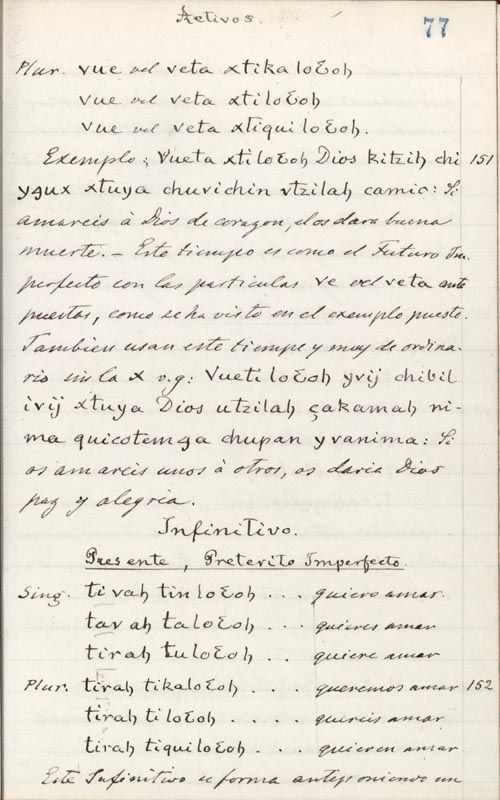 Activos.
77
Plur. vue vel veta xtikaloɛoh
vue vel veta xtiloɛoh
vue vel veta xtiquiloɛoh.
Exemplo: Vueta xtiloɛoh Dios kitzih chi 151
yqux xtuya chuvichin vtzilah camic: Si
amareis à Dios de corazon, el os dara buena
muerte. – Este tiempo es como el Futuro Im-
perfecto con las particulas ve vel veta ante
puestas, como se ha visto en el exemplo puesto.
Tambien usan este tiempo y muy de ordina-
rio sin la x v.g: Vuetiloɛoh yvij chibil
ivij xtuya Dios utzilah çakamah ni-
ma quicotemqa chupan yvanima: Si
os amareis unos à otros, os daria Dios
paz y alegria.
Infinitivo.
Presente, Preterito Imperfecto.
Sing. tivah tinloɛoh . . . quiero amar
tavah taloɛoh . . . quieres amar
tirah tuloɛoh . . . quiere amar
Plur. tirah tikaloɛoh . . . queremos amar 152
tirah tiloɛoh . . . . quereis amar
tirah tiquiloɛoh . . . quieren amar
Este Infinitivo se forma anteponiendo un